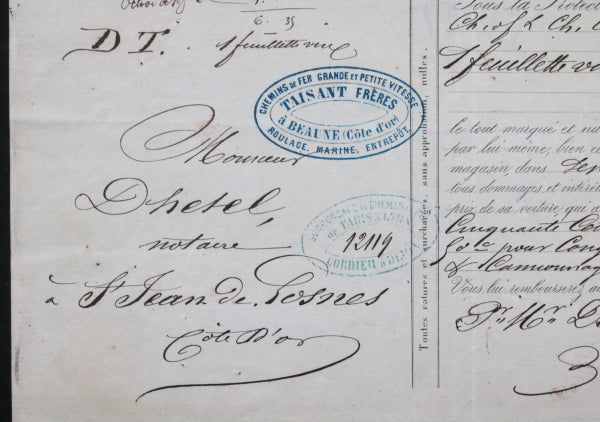 Octroi
6. 35
D T. 1 feuillette vin
CHEMINS DE FER GRANDE ET PETITE VITESSE
TAISANT FRÈRES
à BEAUNE (Côte d'or)
ROULAGE, MARINE, ENTREPÔT.
Monsieur
Dhetel,
notaire
à St Jean de Losnes
Côte D'or
CHEMINS
DE PARIS A LYON
12119
CORDIER A DIJON
Toutes ratures et surcharges, sans approbation, nulles.
Sous la Protec
Ch. of & Ch.
1 feuillette vin
le tout marqué et nu
par lui même, bien c
magasin, dans
tous dommages et intérêt
prix de sa voiture, qui a
Cinquante Cen
pour
& Camionnag
Vous lui rembourserez au
Pr. Mr D
3